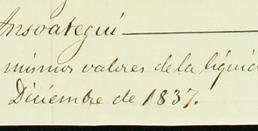 Ansoategui
mismos valores de la liquid
Diciembre de 1837.